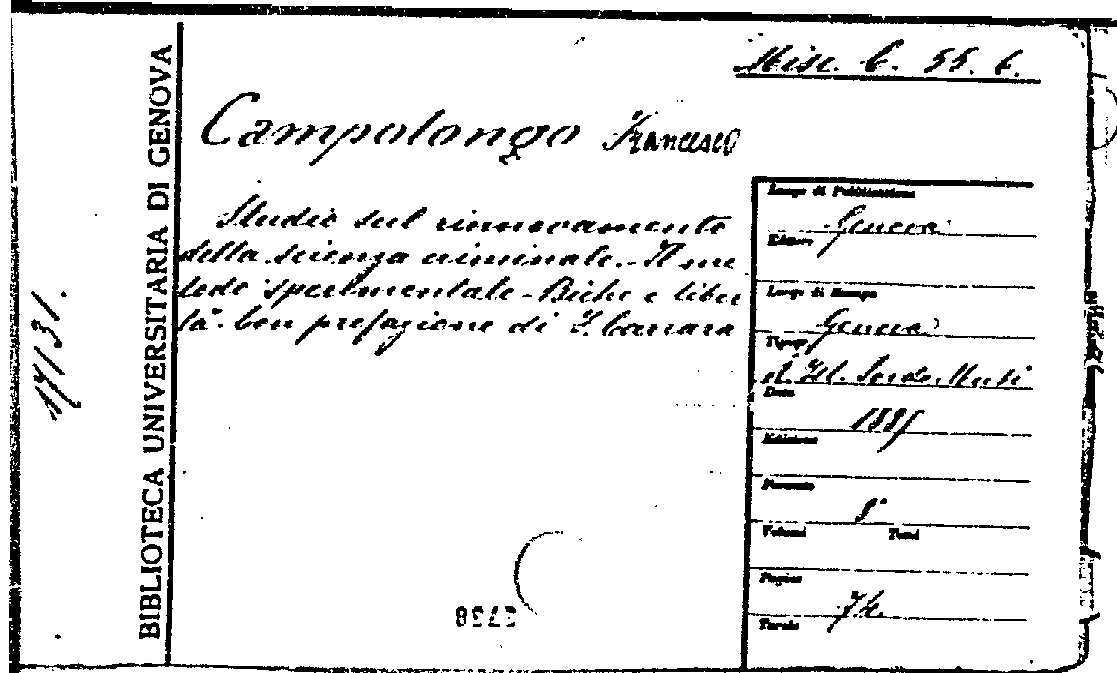 Misc. C. 55. 6.
Campolongo Francesco
Studio sul rinnovamento
della scienza criminale. Il me
todo sperimentale - Biche e liber
tà. Con prefazione di F. Carrara
Luogo di Pubblicazione
Genova
Editore
Luogo di Stampa
Genova
Tipogr.
d. Ist. Sordo Muti
Data
Edizione
Formato
8°
Volumi Tomi
Pagine
74.
Tavole
BIBLIOTECA UNIVERSITARIA DI GENOVA
17131.